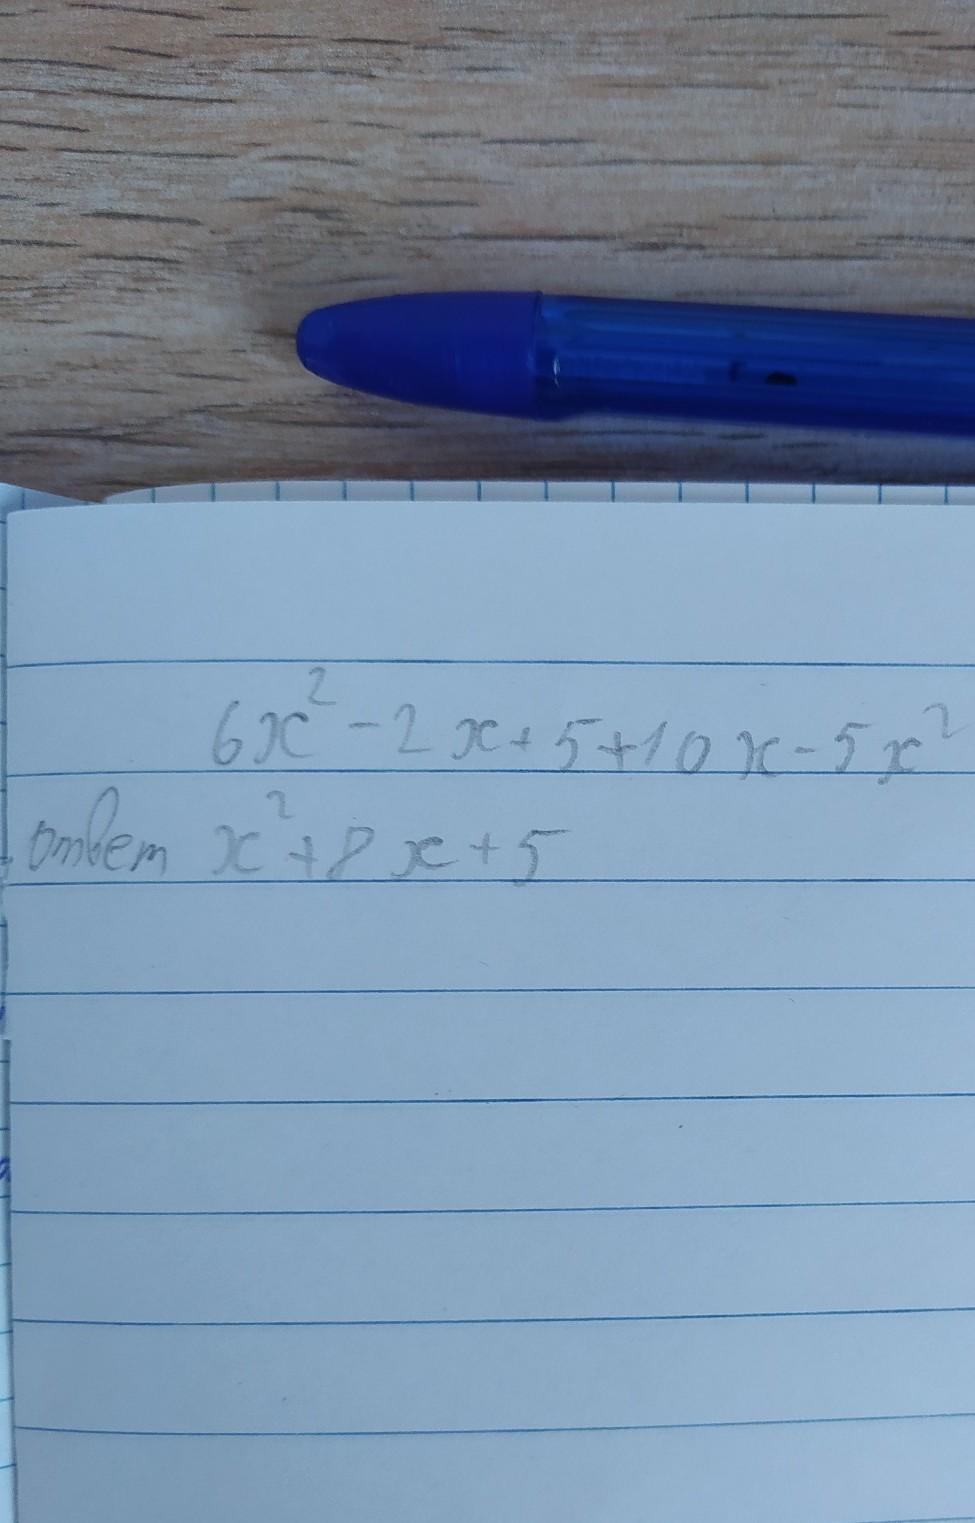 6x² - 2x + 5 + 10x - 5x²
ответ x² + 8x + 5